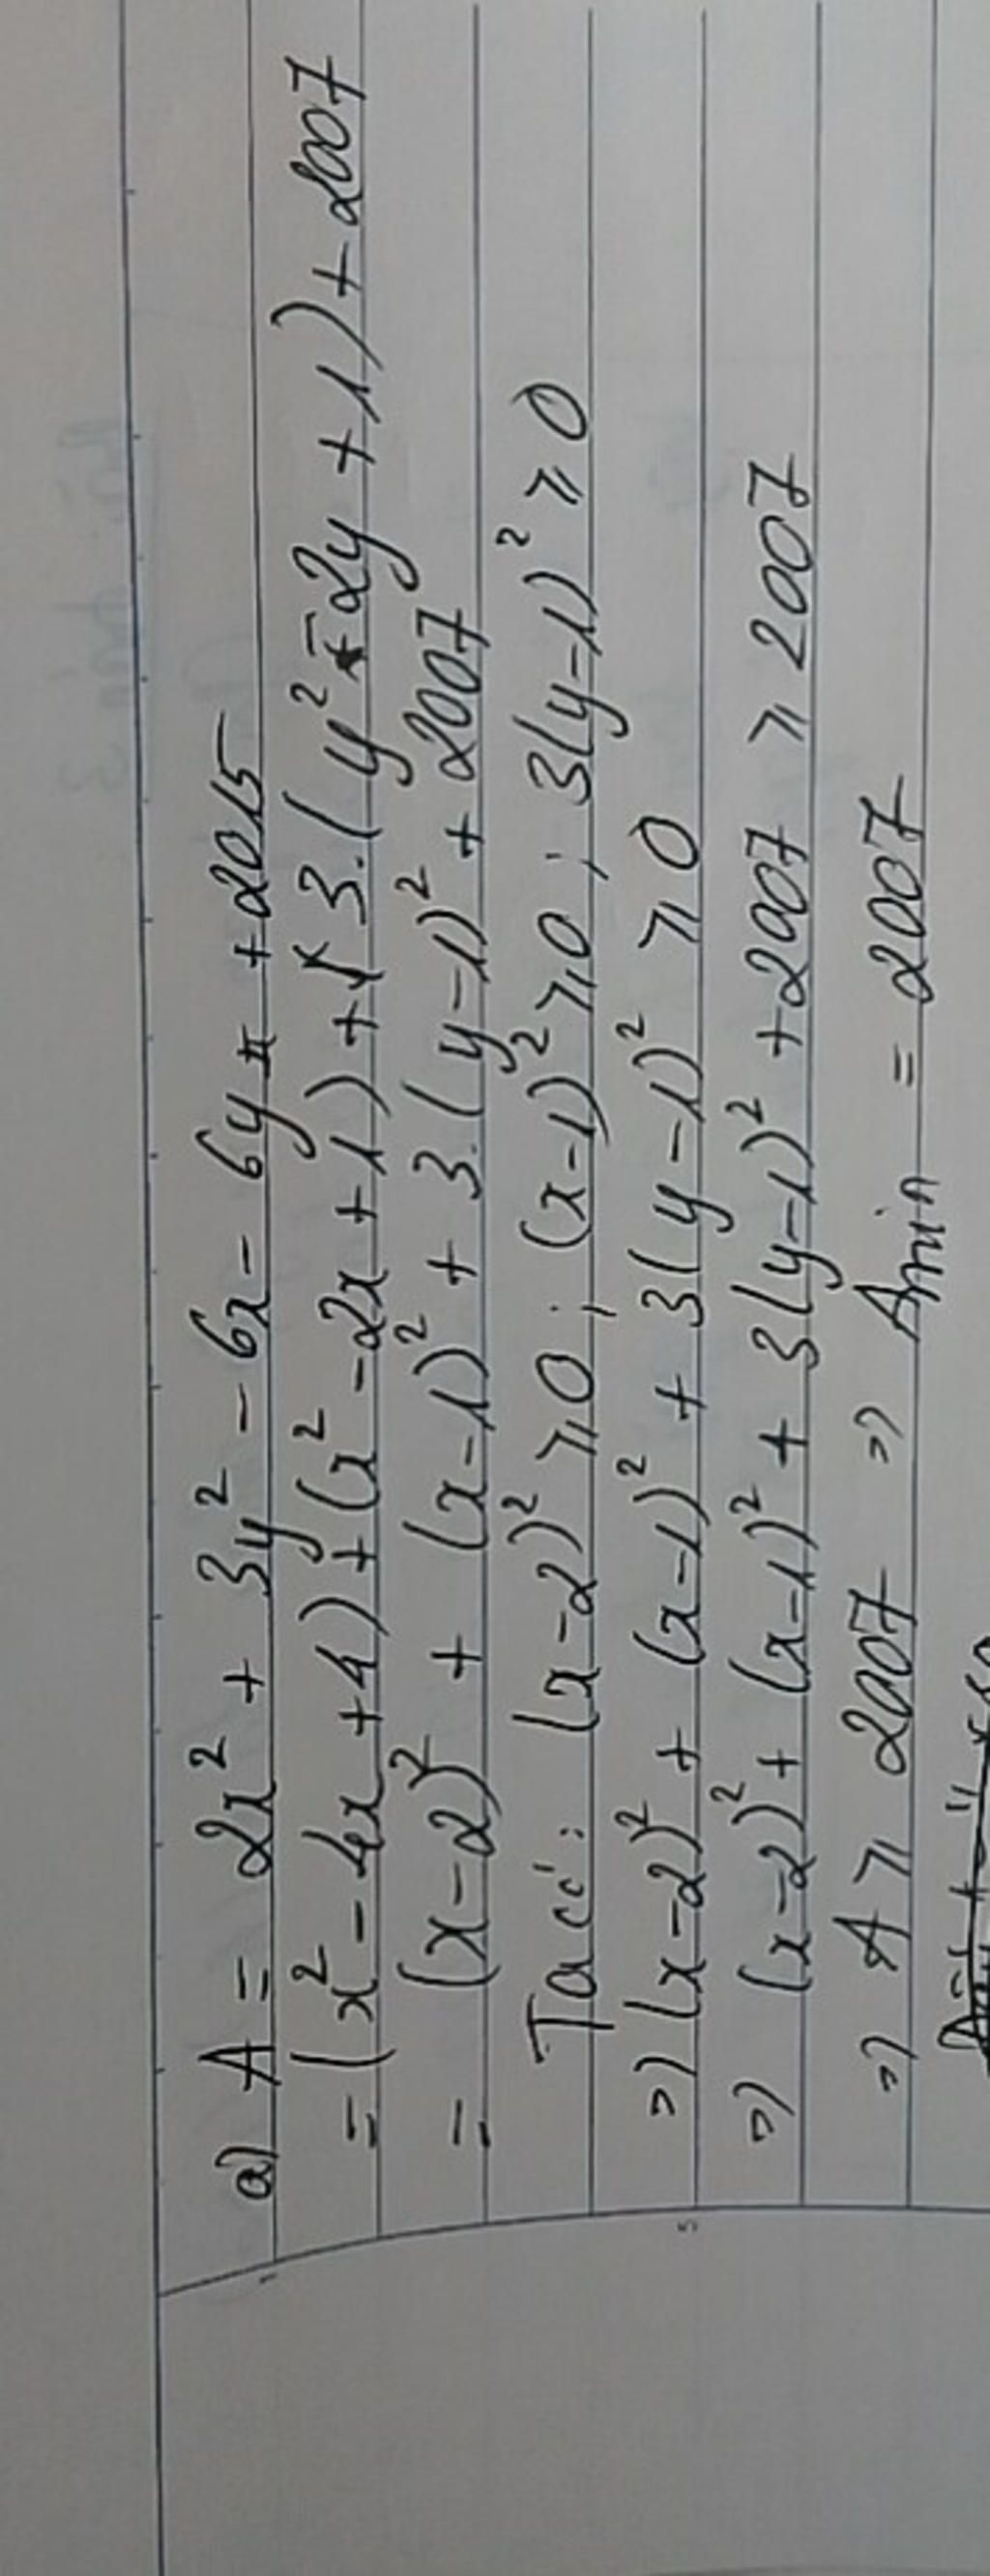 a) A = 2x² + 3y² - 6x - 6y + 2015
= (x² - 4x + 4) + (x² - 2x + 1) + 3.(y² - 2y + 1) + 2007
= (x-2)² + (x-1)² + 3.(y-1)² + 2007
Ta có: (x-2)² ⩾ 0 ; (x-1)² ⩾ 0 ; 3(y-1)² ⩾ 0
=) (x-2)² + (x-1)² + 3(y-1)² ⩾ 0
=) (x-2)² + (x-1)² + 3(y-1)² + 2007 ⩾ 2007
=) A ⩾ 2007 =) Amin = 2007